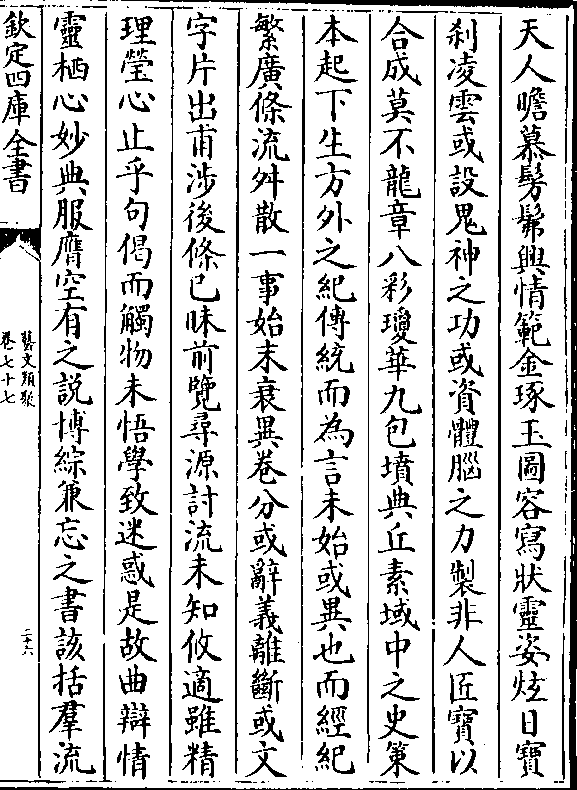 天人瞻慕髣髴興情範金琢玉圖容寫狀靈姿炫日寶
刹凌雲或設鬼神之功或資體腦之力製非人匠寶以
合成莫不龍章八彩瓊華九包墳典丘素域中之史策
本起下生方外之紀傳統而為言未始或異也而經紀
繁廣條流舛散一事始末衰異卷分或辭義離斷或文
字片出甫涉後條已昧前覽尋源討流未知攸適雖精
理瑩心止乎句偈而觸物未悟學致迷惑是故曲辯情
靈栖心妙典服膺空有之説博綜兼忘之書該括羣流
欽定四庫全書
藝文類聚
卷七十七
二十六